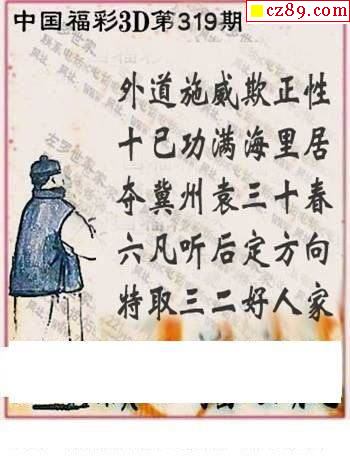 cz89.com
中国福彩3D第319期
外道施威欺正性
十已功满海里居
夺冀州袁三十春
六凡听后定方向
特取三二好人家